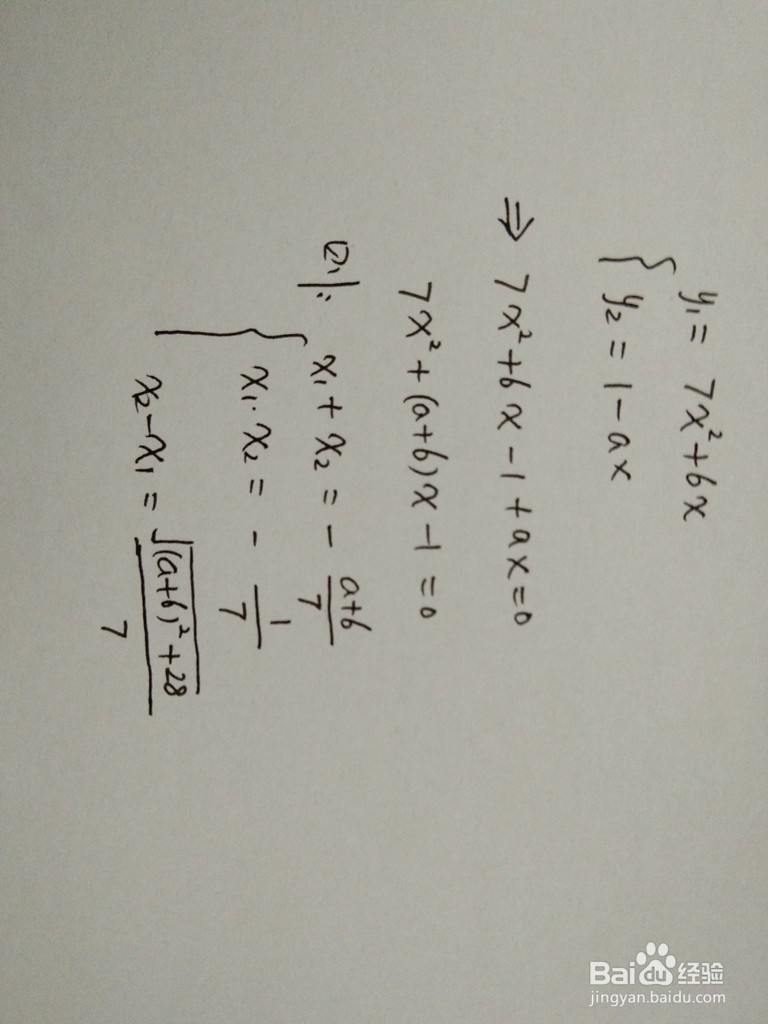 y₁ = 7x²+6x
y₂ = 1-ax
⇒ 7x²+6x-1+ax=0
7x²+(a+6)x-1=0
则:
x₁+x₂ = -\frac{a+6}{7}
x₁·x₂ = -\frac{1}{7}
x₂-x₁ = \frac{\sqrt{(a+6)²+28}}{7}
Baidu经验
jingyan.baidu.com